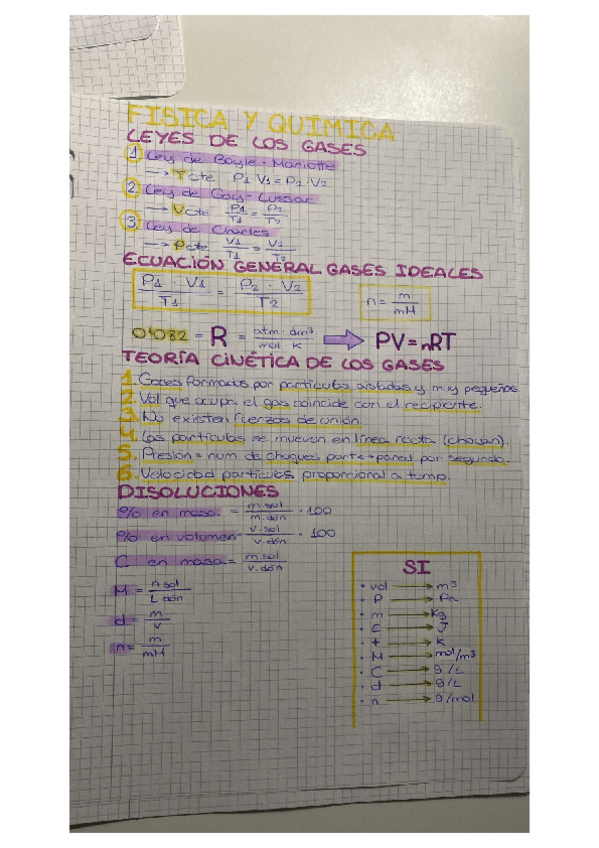 FISICA Y QUÍMICA
LEYES DE LOS GASES
1 Ley de Boyle-Mariotte
→ Tcte P1·V1 = P2·V2
2. Ley de Gay-Lussac
→ Vcte P1/T1 = P2/T2
3. Ley de Charles
→ Pcte V1/T1 = V2/T2
ECUACIÓN GENERAL GASES IDEALES
P1 · V1 / T1 = P2 · V2 / T2
n = m/mM
0'082 = R = atm · dm³ / mol K → PV = nRT
TEORÍA CINÉTICA DE LOS GASES
1. Gases formados por partículas aisladas y muy pequeñas
2. Vol que ocupa el gas coincide con el recipiente.
3. No existen fuerzas de unión.
4. Las partículas se mueven en línea recta (chocan).
5. Presión = num de choques part ↔ pared por segundo.
6. Velocidad partículas proporcional a temp.
DISOLUCIONES
% en masa = m.sol / m.dón · 100
% en volumen = v.sol / v.dón · 100
C en masa = m.sol / v.dón
M = n sol / L dón
d = m/v
n = m/mM
SI
· vol → m³
· P → Pa
· m → Kg
· E → J
· t → K
· M → mol/m³
· C → g/L
· d → g/L
· n → g/mol